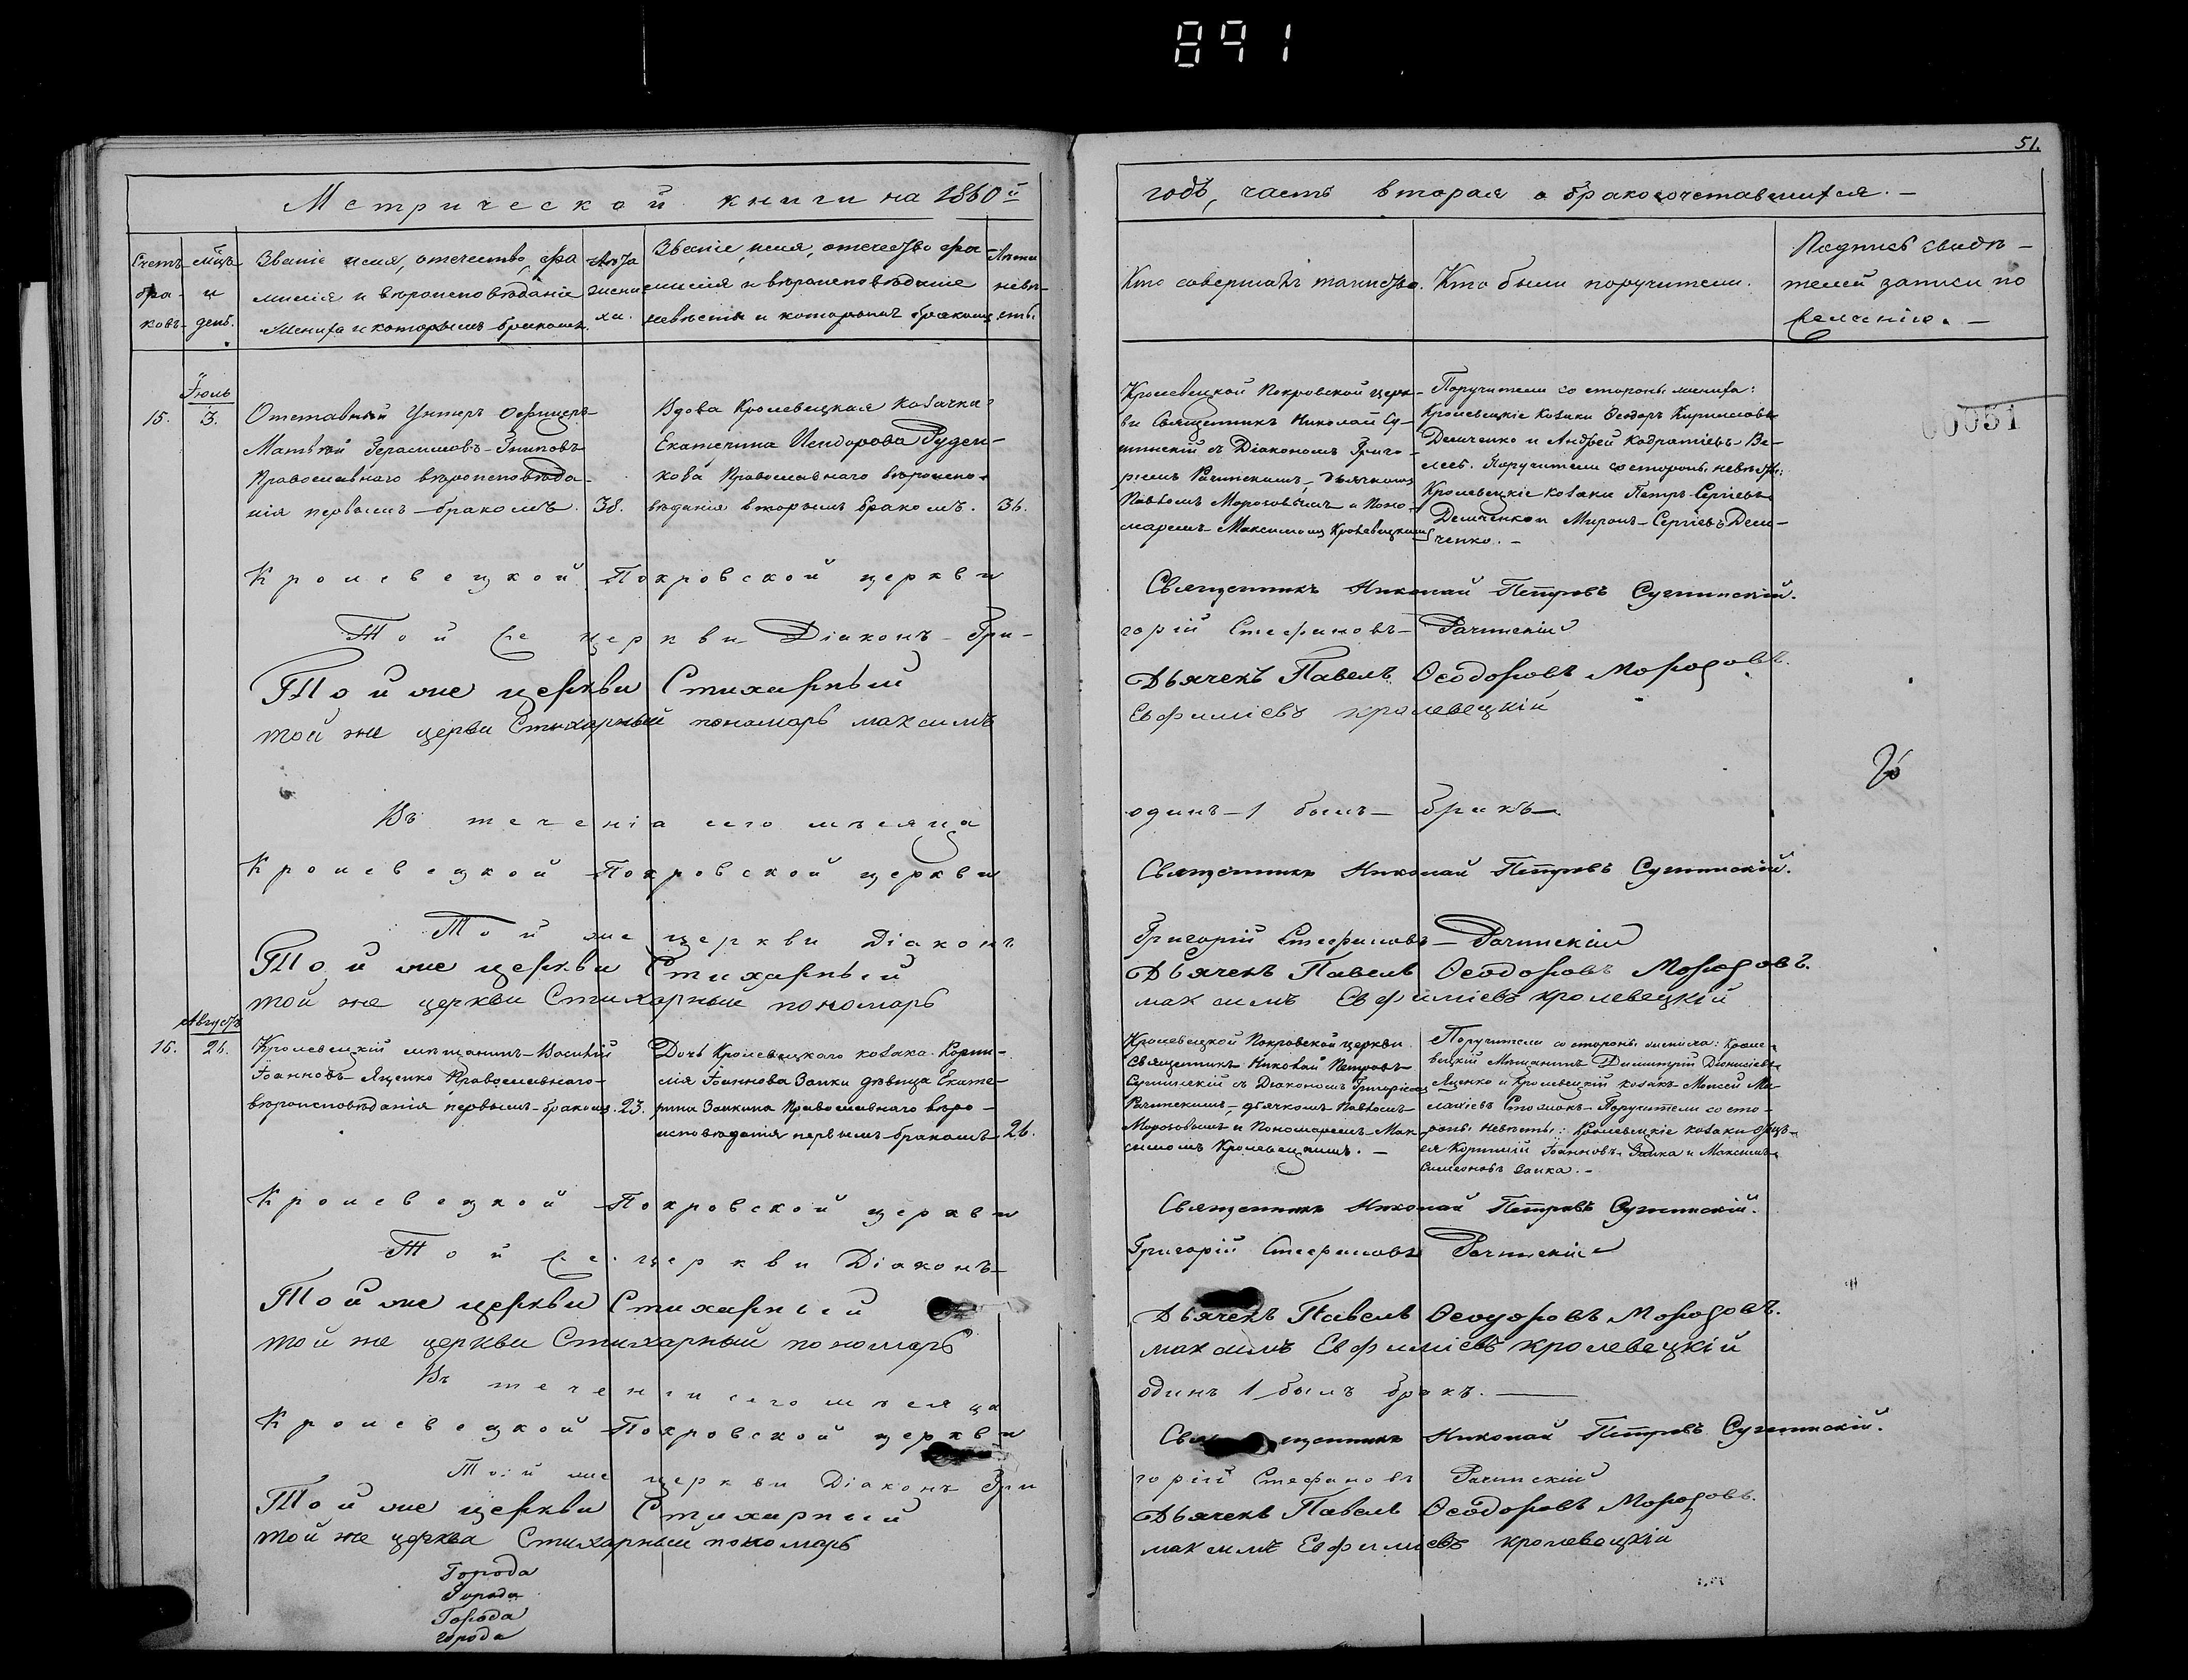 891
51.
Метрической книги на 1860й
годъ, часть вторая о бракосочетавшихся. —
Счетъ бра- ковъ.
мцъ и день.
Званіе имя, отечество, фа
милія и вѣроисповѣданіе
жениха и которымъ бракомъ.
Лѣта
жени
ха.
Званіе, имя, отечество фа-
милія и вѣроисповѣданіе
невѣсты и которымъ бракомъ
Лѣта
невѣ-
сты.
Кто совершалъ таинство.
Кто были поручители.
Подпись свидѣ-
телей записи по
желанію. —
00051
Іюль
15. 3.
Отставный Унтеръ Офицеръ
Матвѣй Герасимовъ
Православнаго вѣроисповѣда-
нія первымъ бракомъ. 38.
Вдова Кролевецкая козачка
Екатерина Руден-
кова Православнаго вѣроиспо-
вѣданія вторымъ бракомъ. 36.
Кролевецкой Покровской церк-
ви Священникъ Николай Су-
шинскій съ Діакономъ Григо-
ріемъ Рачинскимъ, дьячкомъ
Павломъ Морозовымъ и Поно-
маремъ Максимомъ Кролевецкимъ
Поручители со стороны жениха:
Кролевецкіе козаки Ѳеодоръ Кириловъ
Демченко и Андрей Кодратіевъ Ве-
лесъ. Поручители со стороны невѣсты:
Кролевецкіе козаки Петръ Сергіевъ
Демченко и Миронъ Сергіевъ Дем-
ченко. —
Кролевецкой Покровской церкви
Священникъ Николай Петровъ Сушинскій.
Той же церкви Діаконъ Гри-
горій Стефановъ Рачинскій
Той же церкви Стихарный
Дьячекъ Павелъ Ѳеодоровъ Морозовъ.
той же церви Стихарный пономарь максимъ
Евфиміевъ кролевецкій
Въ теченіа сего мѣсяца
одинъ — 1 былъ — бракъ —
Кролевецкой Покровской церкви
Священникъ Николай Петровъ Сушинскій.
Той же церкви Діаконъ
Григорій Стефановъ — Рачинскій
Той же церкви Стихарный
Дьячекъ Павелъ Ѳеодоровъ Морозовъ.
той же церкви Стихарный пономарь
максимъ Евфиміевъ кролевецкій
Августъ
16. 26.
Кролевецкій мѣщанинъ Василій
Іоанновъ Яценко Православнаго
вѣроисповѣданія первымъ бракомъ. 23.
Дочь Кролевецкаго козака Корни-
лія Іоаннова Заики дѣвица Екате-
рина Заикина Православнаго вѣро-
исповѣданія первымъ бракомъ 26.
Кролевецкой Покровской церкви
Священникъ Николай Петровъ
Сушинскій съ Діакономъ Григоріемъ
Рачинскимъ, дьячкомъ Павломъ
Морозовымъ и Пономаремъ Мак-
симомъ Кролевецкимъ. —
Поручители со стороны жениха: Кроле-
вецкій Мѣщанинъ Димитрій Діонисіевъ
Яценко и Кролевецкій козакъ Моисей Ма-
лахіевъ Поручители со сто-
роны невѣсты: Кролевецкіе козаки отецъ
ея Корнилій Іоанновъ Заика и Максимъ
Симеоновъ Заика. —
Кролевецкой Покровской церкви
Священникъ Николай Петровъ Сушинскій.
Той же церкви Діаконъ
Григорій Стефановъ Рачинскій
Той же церкви Стихарный
Дьячекъ Павелъ Ѳеодоровъ Морозовъ.
той же церкви Стихарный пономарь
максимъ Евфиміевъ кролевецкій
Въ теченіи сего мѣсяца
одинъ 1 былъ бракъ. —
Кролевецкой Покровской церкви
Священникъ Николай Петровъ Сушинскій.
Той же церкви Діаконъ Гри
горій Стефановъ Рачинскій
Той же церкви Стихарный
Дьячекъ Павелъ Ѳеодоровъ Морозовъ.
той же церква Стихарный пономарь
максимъ Евфиміевъ кролевецкій
Города
Города
Города
города